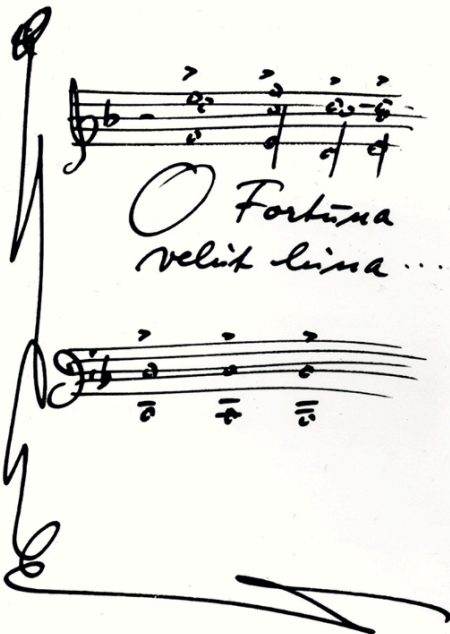 O Fortūna
velut lūna ...